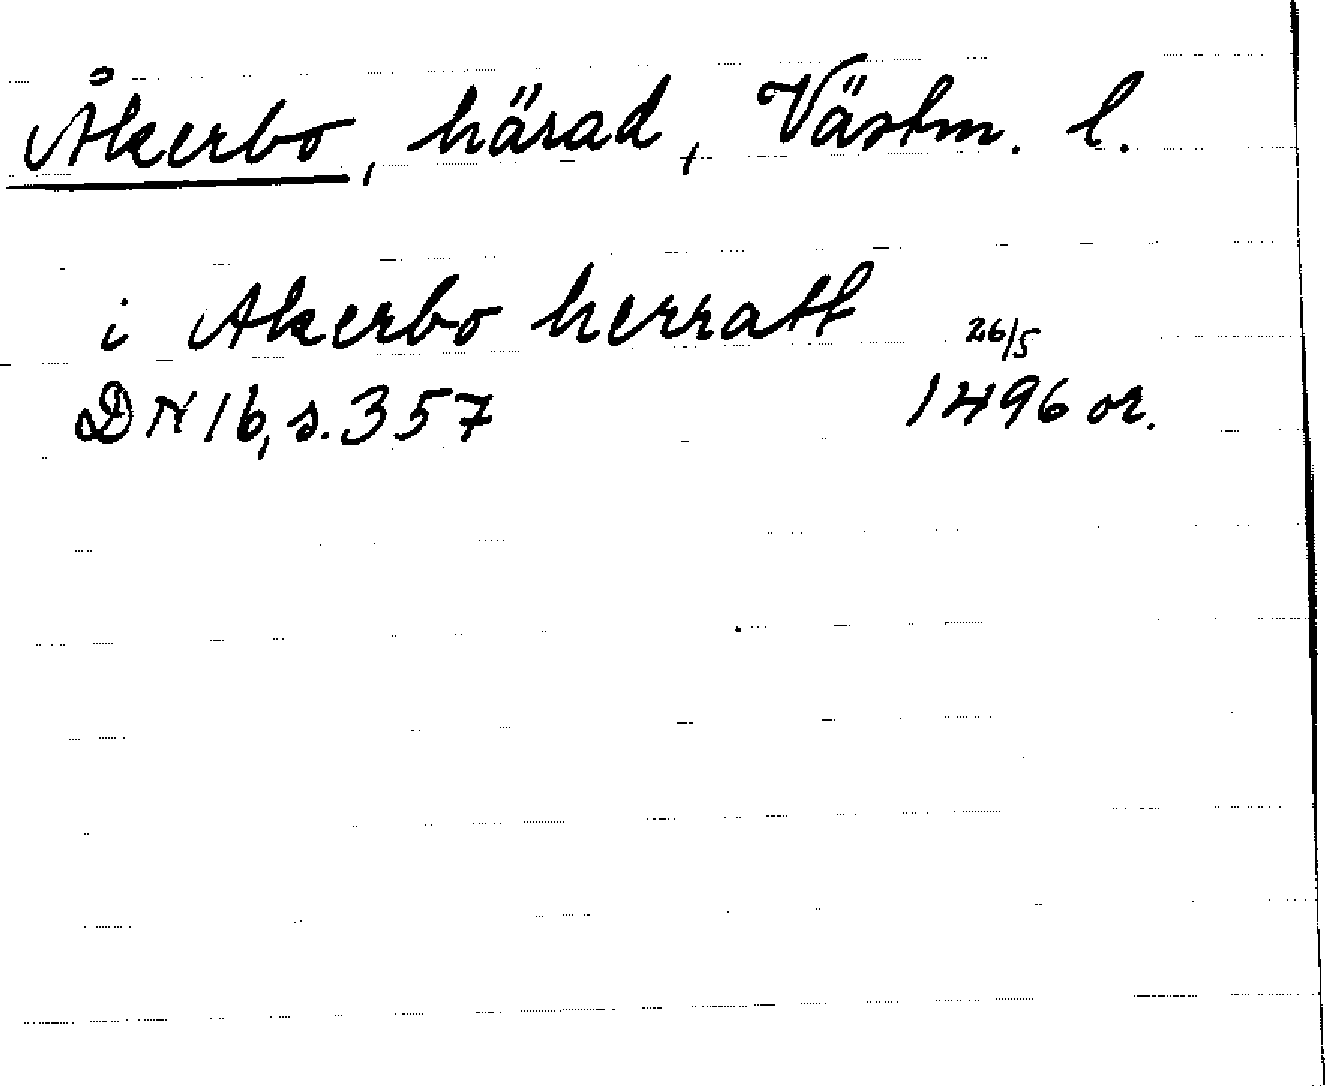 Åkerbo, härad, Västm. l.
i Akerbo herratt 26/5
DN 16, s. 357 1496 or.